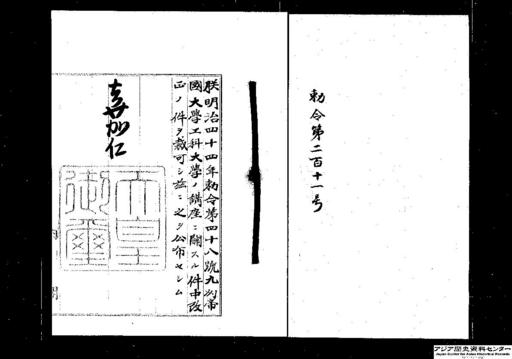 勅令第二百十一号
朕明治四十四年勅令第四十八號九州帝
國大學工科大學ノ講座ニ關スル件中改
正ノ件ヲ裁可シ茲ニ之ヲ公布セシム
嘉仁
天皇
御璽
アジア歴史資料センター
Japan Center for Asian Historical Records